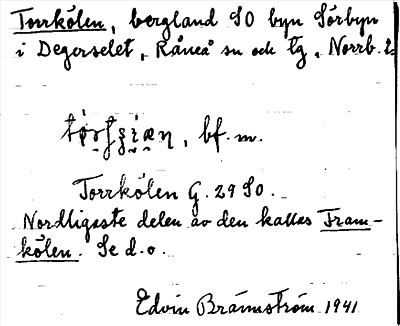 Torrkölen, bergland SO byn Sörbyn
i Degerselet, Råneå sn och tg, Norrb. l.
bf. m.
Torrkölen G. 29 SO.
Nordligaste delen av den kallas Fram-
kölen. Se d.o.
Edvin Brännström 1941